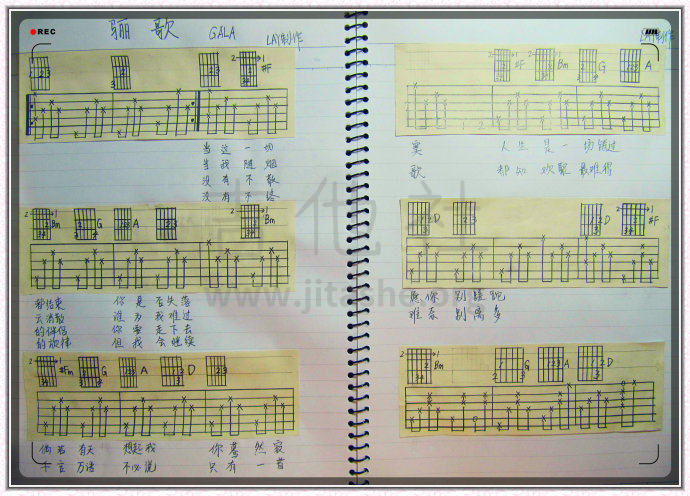 REC
骊歌 GALA LAY制作
#F
当这一切
当我随烟
没有不散
没有不活
Bm G A Bm
都结束 你是否失落
云消散 谁为我难过
的伴侣 你要走下去
的旋律 但我会继续
#Fm G A D
倘若有天 想起我 你蓦然寂
千言万语 不必说 只有一首
LAY制作
#F Bm G A
寞 人生是一场错过
歌 都知欢聚最难得
D D #F
愿你别蹉跎
难奈别离多
Bm G A D
吉他社
www.jitashe.org